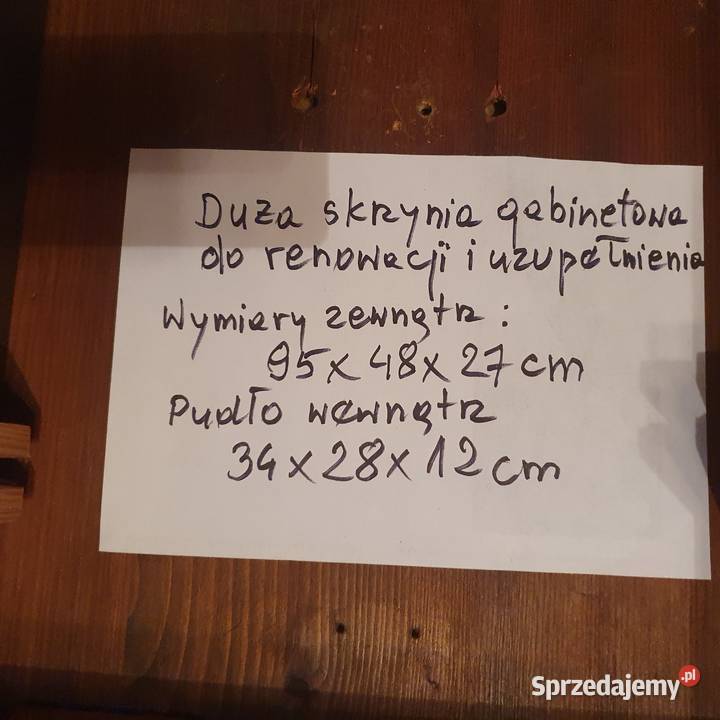 Duża skrzynia gabinetowa
do renowacji i uzupełnienia
Wymiary zewnątrz:
95 x 48 x 27 cm
Pudło wewnątrz
34 x 28 x 12 cm
Sprzedajemy.pl